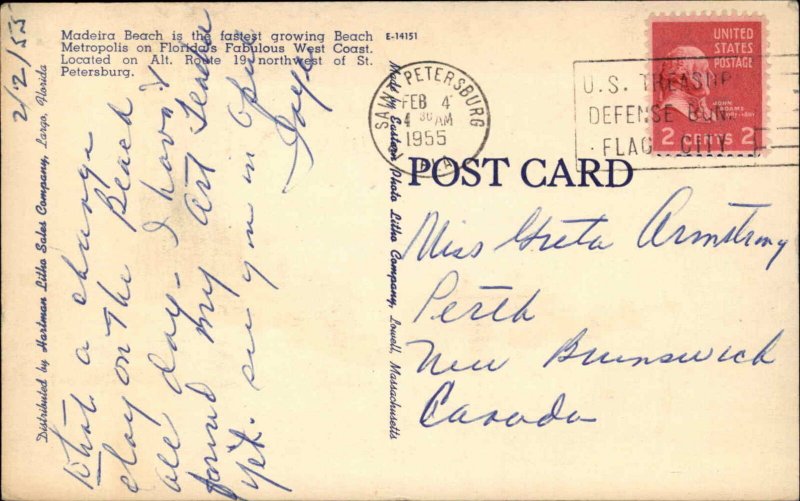 Madeira Beach is the fastest growing Beach
Metropolis on Florida's Fabulous West Coast.
Located on Alt. Route 19 northwest of St.
Petersburg.
E-14151
2/2/55
What a change
clay on the Beach
all day - I haven't
found my art teacher
yet. see you in
Faye
Distributed by Hartman Litho Sales Company, Largo, Florida
Made by Eastern Photo Litho Company, Lowell, Massachusetts
SAINT PETERSBURG
FEB 4
4 30 AM
1955
FLA
U.S. TREASUR
DEFENSE BON
FLAG CITY
UNITED
STATES
POSTAGE
JOHN
ADAMS
2 CENTS 2
POST CARD
Miss Greta Armstrong
Perth
New Brunswick
Canada